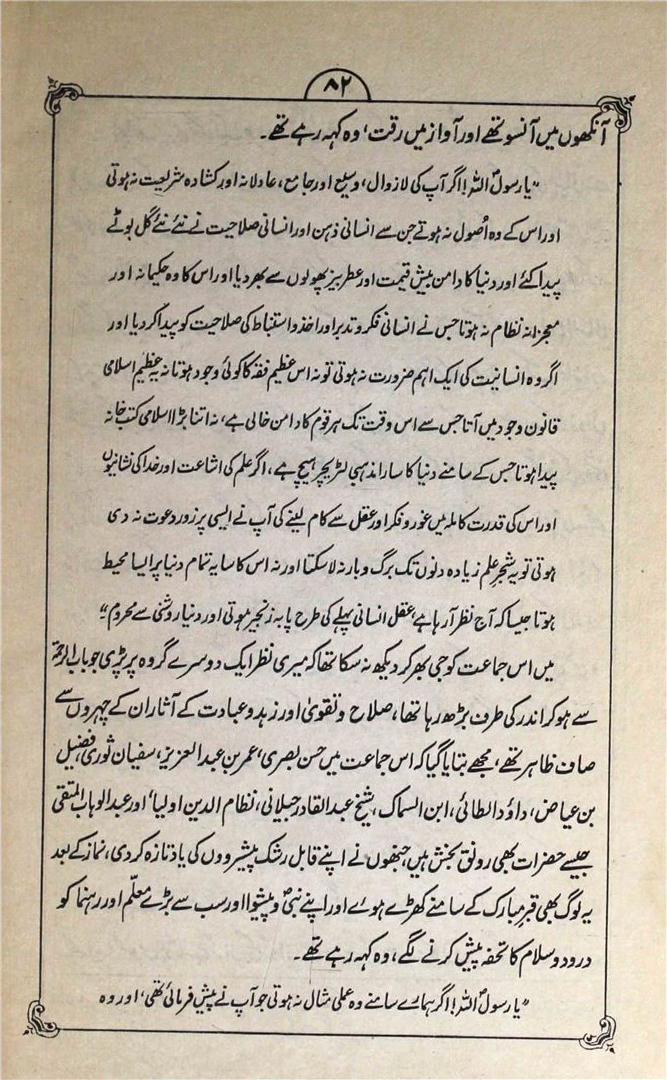 ۸۲
آنکھوں میں آنسو تھے اور آواز میں رقت، وہ کہہ رہے تھے۔
"یا رسولؐ اللہ! اگر آپ کی لازوال، وسیع اور جامع، عادلانہ اور کشادہ شریعت نہ ہوتی
اور اس کے وہ اُصول نہ ہوتے جن سے انسانی ذہن اور انسانی صلاحیت نے نئے نئے گل بوٹے
پیدا کئے اور دنیا کا دامن بیش قیمت اور عطر بیز پھولوں سے بھر دیا اور اس کا وہ حکیمانہ اور
معجزانہ نظام نہ ہوتا جس نے انسانی فکر و تدبر اور اخذ و استنباط کی صلاحیت کو پیدا کر دیا اور
اگر وہ انسانیت کی ایک اہم ضرورت نہ ہوتی تو نہ اس عظیم فقہ کا کوئی وجود ہوتا نہ یہ عظیم اسلامی
قانون وجود میں آتا جس سے اس وقت تک ہر قوم کا دامن خالی ہے، نہ اتنا بڑا اسلامی کتب خانہ
پیدا ہوتا جس کے سامنے دنیا کا سارا مذہبی لٹریچر ہیچ ہے، اگر علم کی اشاعت اور خدا کی نشانیوں
اور اس کی قدرت کاملہ میں غور و فکر اور عقل سے کام لینے کی آپ نے ایسی پر زور دعوت نہ دی
ہوتی تو یہ شجر علم زیادہ دنوں تک برگ و بار نہ لا سکتا اور نہ اس کا سایہ تمام دنیا پر ایسا محیط
ہوتا جیسا کہ آج نظر آ رہا ہے، عقل انسانی پہلے کی طرح پا بہ زنجیر ہوتی اور دنیا روشنی سے محروم"
میں اس جماعت کو جی بھر کر دیکھ نہ سکا تھا کہ میری نظر ایک دوسرے گروہ پر پڑی جو باب الرحمۃ
سے ہو کر اندر کی طرف بڑھ رہا تھا، صلاح و تقویٰ اور زہد و عبادت کے آثار ان کے چہروں سے
صاف ظاہر تھے، مجھے بتایا گیا کہ اس جماعت میں حسن بصری، عمر بن عبدالعزیز، سفیان ثوری، فضیل
بن عیاض، داؤد الطائی، ابن السماک، شیخ عبدالقادر جیلانی، نظام الدین اولیا، اور عبدالوہاب المتقی
جیسے حضرات بھی رونق بخش ہیں، جنھوں نے اپنے قابل رشک پیشرووں کی یاد تازہ کر دی، نماز کے بعد
یہ لوگ بھی قبر مبارک کے سامنے کھڑے ہوئے اور اپنے نبیؐ و پیشوا اور سب سے بڑے معلّم اور رہنما کو
درود و سلام کا تحفہ پیش کرنے لگے، وہ کہہ رہے تھے۔
"یا رسولؐ اللہ! اگر ہمارے سامنے وہ عملی مثال نہ ہوتی جو آپ نے پیش فرمائی تھی، اور وہ